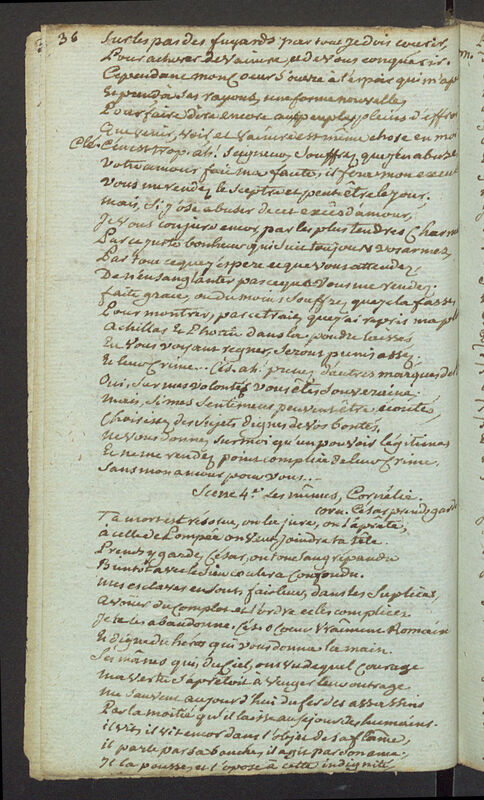 36
Sur les pas des fuyards partout je dois courir,
Pour achever de vaincre et de vous conquerir.
Cependant mon Coeur s'ouvre à l'espoir qui
Et prend à ses rayons une forme nouvelle
Pour faire dire encore aux peuples pleins d'effroi
Que venir, voir et vaincre est même chose en moi
Cle. C'en est trop, ah! Seigneur, Souffrez que j'en abuse
Votre amour fait ma faute, il fera mon excuse
Vous me rendez le Sceptre et peut être le jour.
Mais, Si j'ose abuser de cet excès d'amour,
Je vous conjure encor, par les plus tendres Charmes
Par ce juste bonheur qui suit toujours vos armes,
Par tout ce que j'espere et que vous attendez,
De n'ensanglanter pas ce que vous me rendez.
faite grace, ou du moins Souffrez que je la fasse,
Pour montrer, par cela, que j'ai repris ma place
Achillas et Photin dans la poudre laissés
En vous voyant regner, Seront punis assez.
Et leur Crime... Cés. ah. prenez d'autres marques de
Oui, Sur mes volontés vous êtes Souveraine.
Mais, Si mes Sentimens peuvent être écoutés,
Choisissez des Sujets dignes de vos bontés.
Ne vous donnez Sur moi qu'un pouvoir légitime
Et ne me rendez point complice de leur Crime.
Sans mon amour pour vous...
Scene 4e. Les mêmes, Cornélie.
Cor. César prends garde
Ta mort est résolue, on la jure, on l'aprête;
à celle de Pompée on veut joindre ta tête.
Prens y garde, César, ou ton Sang répandu
Bientôt avec le Sien coulera Confondu.
Mes esclaves en sont, fais leur, dans les Suplices,
Avouer du Complot et l'ordre et les complices
Je te les abandonne. Cés. O Coeur vraiment Romain
Et digne du heros qui vous donna la main.
Ses mânes qui, du Ciel, ont vu de quel Courage
ma vertu S'aprêtoit à venger leur outrage
me Sauvent aujourd'hui du fer des assassins
Par la moitié qu'il laisse au sejour des humains.
il vit, il vit encor dans l'objet de sa flâme,
il parle par sa bouche, il agit par son ame.
Il la pousse, et l'opose à cette indignité